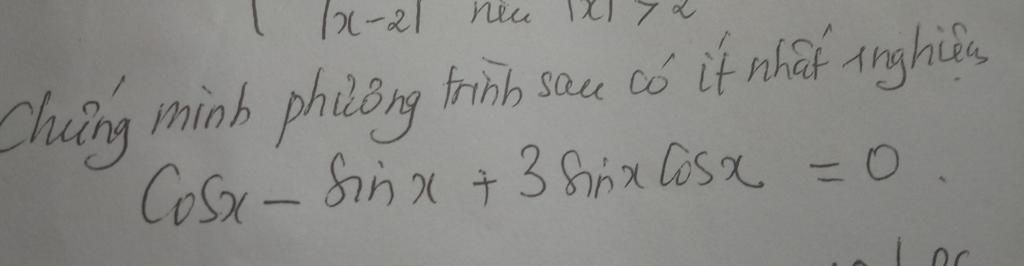 |x-2| nếu |x| > 2
Chứng minh phương trình sau có ít nhất 1 nghiệm
Cosx - sinx + 3 sinx Cosx = 0.